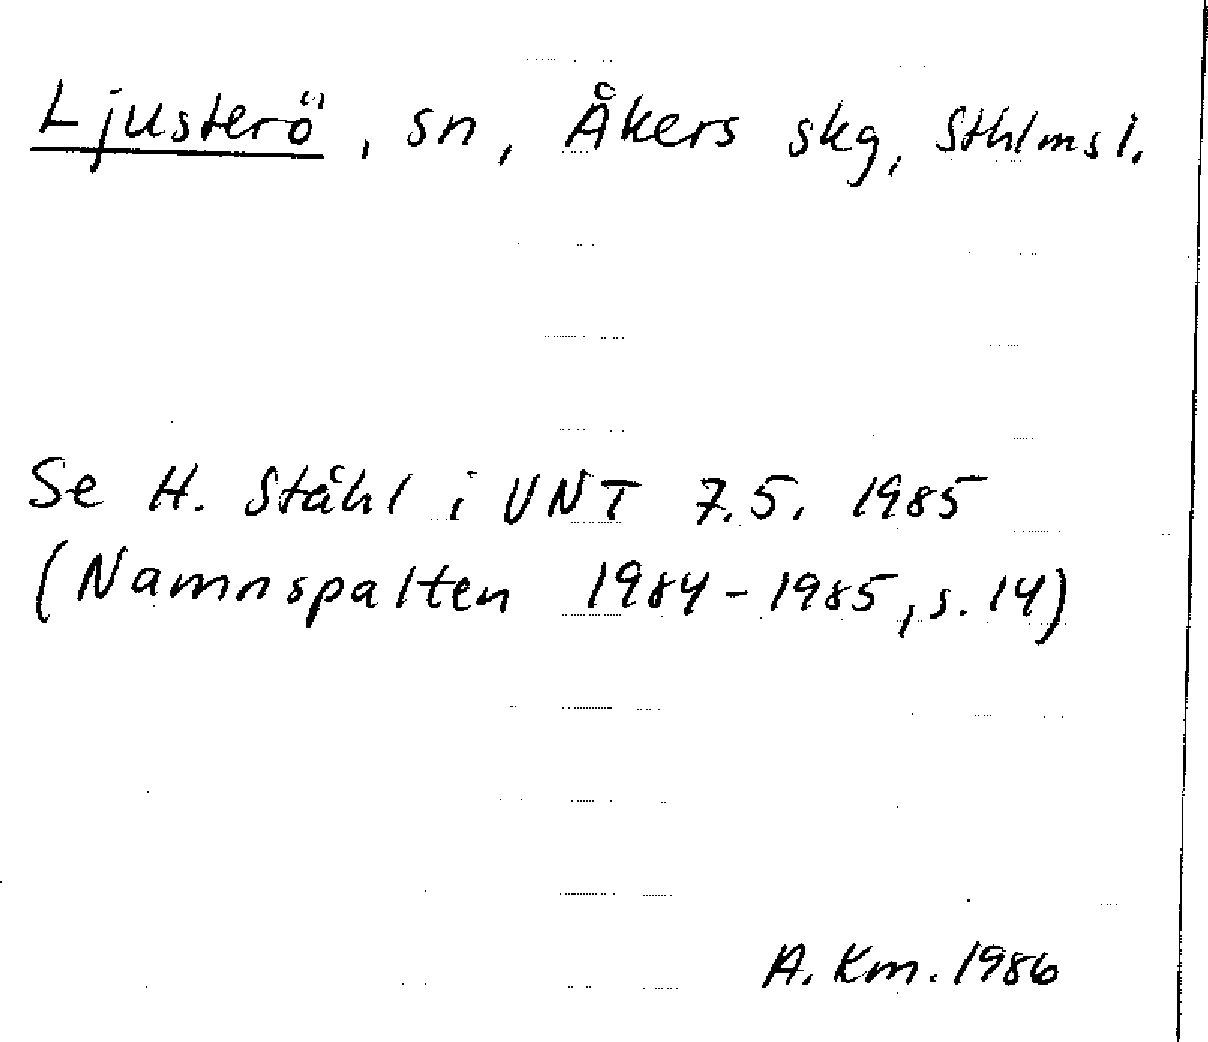 Ljusterö, sn, Åkers skg, Sthlmsl.
Se H. Ståhl i UNT 7.5. 1985
(Namnspalten 1984-1985, s. 14)
A. Km. 1986